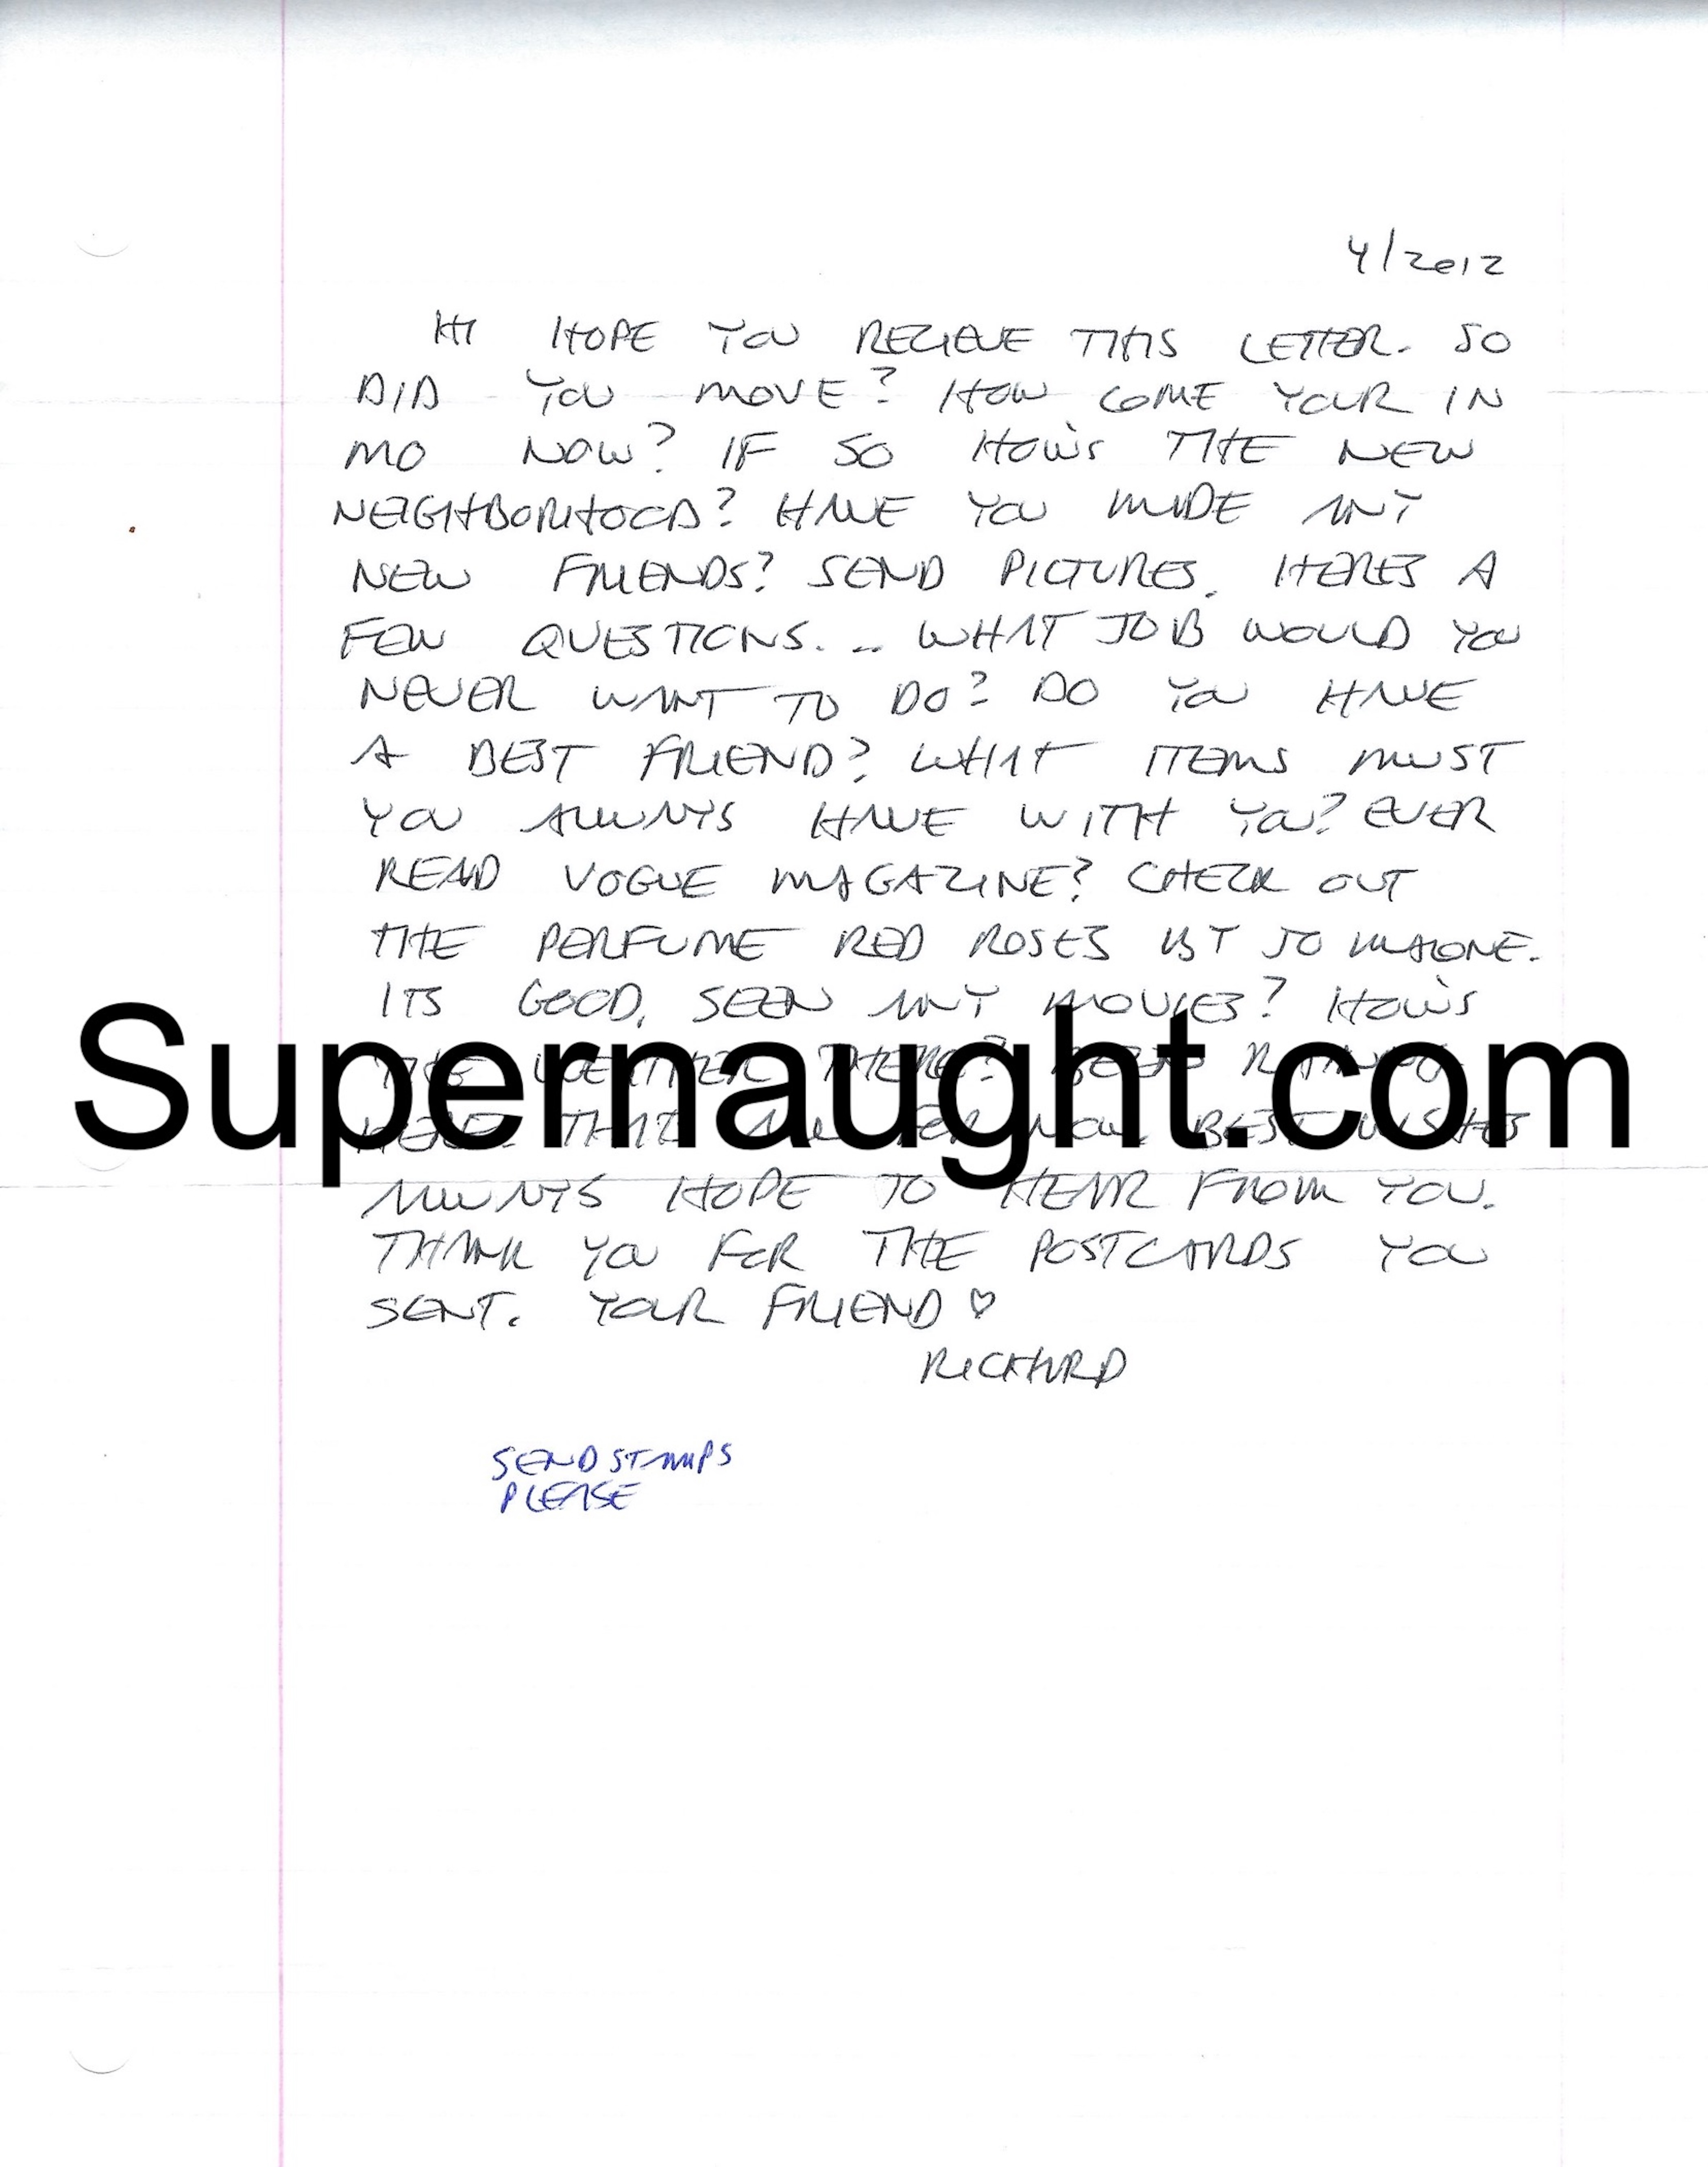 4/2012
HI HOPE YOU RECIEVE THIS LETTER. SO
DID YOU MOVE? HOW COME YOUR IN
MO NOW? IF SO HOW'S THE NEW
NEIGHBORHOOD? HAVE YOU MADE ANY
NEW FRIENDS? SEND PICTURES. HERES A
FEW QUESTIONS... WHAT JOB WOULD YOU
NEVER WANT TO DO? DO YOU HAVE
A BEST FRIEND? WHAT ITEMS MUST
YOU ALWAYS HAVE WITH YOU? EVER
READ VOGUE MAGAZINE? CHECK OUT
THE PERFUME RED ROSES BY JO MALONE.
ITS GOOD. SEEN ANY MOVIES? HOW'S
Supernaught.com
THE WEATHER THERE? BEEN RAINING
HERE. THATS ALL FOR NOW BEST WISHES
ALWAYS HOPE TO HEAR FROM YOU.
THANK YOU FOR THE POSTCARDS YOU
SENT. YOUR FRIEND ♡
RICHARD
SEND STAMPS
PLEASE